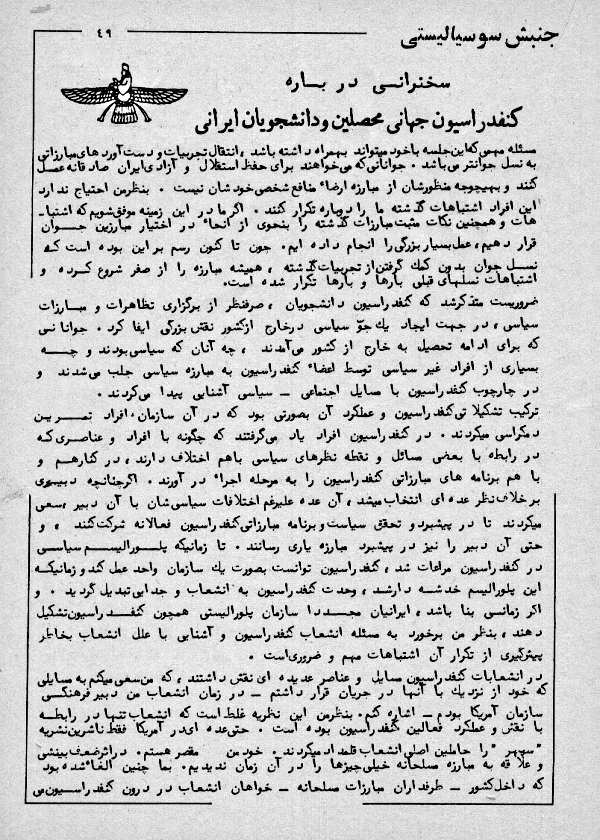 جنبش سوسیالیستی
٤٩
سخنرانی در باره
کنفدراسیون جهانی محصلین ودانشجویان ایرانی
مسئله مهمی که این جلسه با خود میتواند بهمراه داشته باشد ، انتقال تجربیات و دست آورد های مبارزاتی
به نسل جوانتر می باشد . جوانانی که می خواهند برای حفظ استقلال و آزادی ایران صادقانه عمل
کنند و بهیچوجه منظورشان از مبارزه ارضاء منافع شخصی خودشان نیست . بنظر من احتیاج ندارد
این افراد اشتباهات گذشته ما را دوباره تکرار کنند . اگر ما در این زمینه موفق شویم که اشتبا‌ـ
هات و همچنین نکات مثبت مبارزات گذشته را بنحوی از انحاء در اختیار مبارزین جوان
قرار دهیم ، عمل بسیار بزرگی را انجام داده ایم . چون تا کنون رسم بر این بوده است که
نسل جوان بدون کمک گرفتن از تجربیات گذشته ، همیشه مبارزه را از صفر شروع کرده و
اشتباهات نسلهای قبلی بارها و بارها تکرار شده است .
ضروریست متذکر شد که کنفدراسیون دانشجویان ، صرفنظر از برگزاری تظاهرات و مبارزات
سیاسی ، در جهت ایجاد یک جوّ سیاسی در خارج از کشور نقش بزرگی ایفا کرد . جوانانی
که برای ادامه تحصیل به خارج از کشور می آمدند ، چه آنان که سیاسی بودند و چه
بسیاری از افراد غیر سیاسی توسط اعضاء کنفدراسیون به مبارزه سیاسی جلب می شدند و
در چارچوب کنفدراسیون با مسایل اجتماعی ــ سیاسی آشنایی پیدا می کردند .
ترکیب تشکیلاتی کنفدراسیون و عملکرد آن بصورتی بود که در آن سازمان ، افراد تمرین
دمکراسی میکردند . در کنفدراسیون افراد یاد می گرفتند که چگونه با افراد و عناصری که
در رابطه با بعضی مسائل و نقطه نظرهای سیاسی باهم اختلاف دارند ، در کنار هم و
با هم برنامه های مبارزاتی کنفدراسیون را به مرحله اجراء در آورند . اگر چنانچه دبیری
بر خلاف نظر عده ای انتخاب میشد ، آن عده علیرغم اختلافات سیاسی شان با آن دبیر ، سعی
میکردند تا در پیشبرد و تحقق سیاست و برنامه مبارزاتی کنفدراسیون فعالانه شرکت کنند ، و
حتی آن دبیر را نیز در پیشبرد مبارزه یاری رسانند . تا زمانیکه پلورالیسم سیاسی
در کنفدراسیون مراعات شد ، کنفدراسیون توانست بصورت یک سازمان واحد عمل کند و زمانیکه
این پلورالیسم خدشه دار شد ، وحدت کنفدراسیون به انشعاب و جدایی تبدیل گردید . و
اگر زمانی بنا باشد ، ایرانیان مجددا سازمان پلورالیستی همچون کنفدراسیون تشکیل
دهند ، بنظر من برخورد به مسئله انشعاب کنفدراسیون و آشنایی با علل انشعاب بخاطر
پیش گیری از تکرار آن اشتباهات مهم و ضروری است .
در انشعابات کنفدراسیون مسایل و عناصر عدیده ای نقش داشتند ، که من سعی میکنم به مسایلی
که خود از نزدیک با آنها در جریان قرار داشتم ــ در زمان انشعاب من دبیر فرهنگی
سازمان آمریکا بودم ــ اشاره کنم . بنظر من این نظریه غلط است که انشعاب تنها در رابطه
با نقش و عملکرد فعالین کنفدراسیون بوده است . حتی عده ای در آمریکا فقط ناشرین نشریه
" سپهر " را حاملین اصلی انشعاب قلمداد میکردند . خود من مقصر هستم . در اثر ضعف بینشی
و علاقه به مبارزه مسلحانه خیلی چیزها را در آن زمان ندیدیم . بما چنین الغاء شده بود
که داخل کشور ــ طرفداران مبارزات مسلحانه ــ خواهان انشعاب در درون کنفدراسیون می